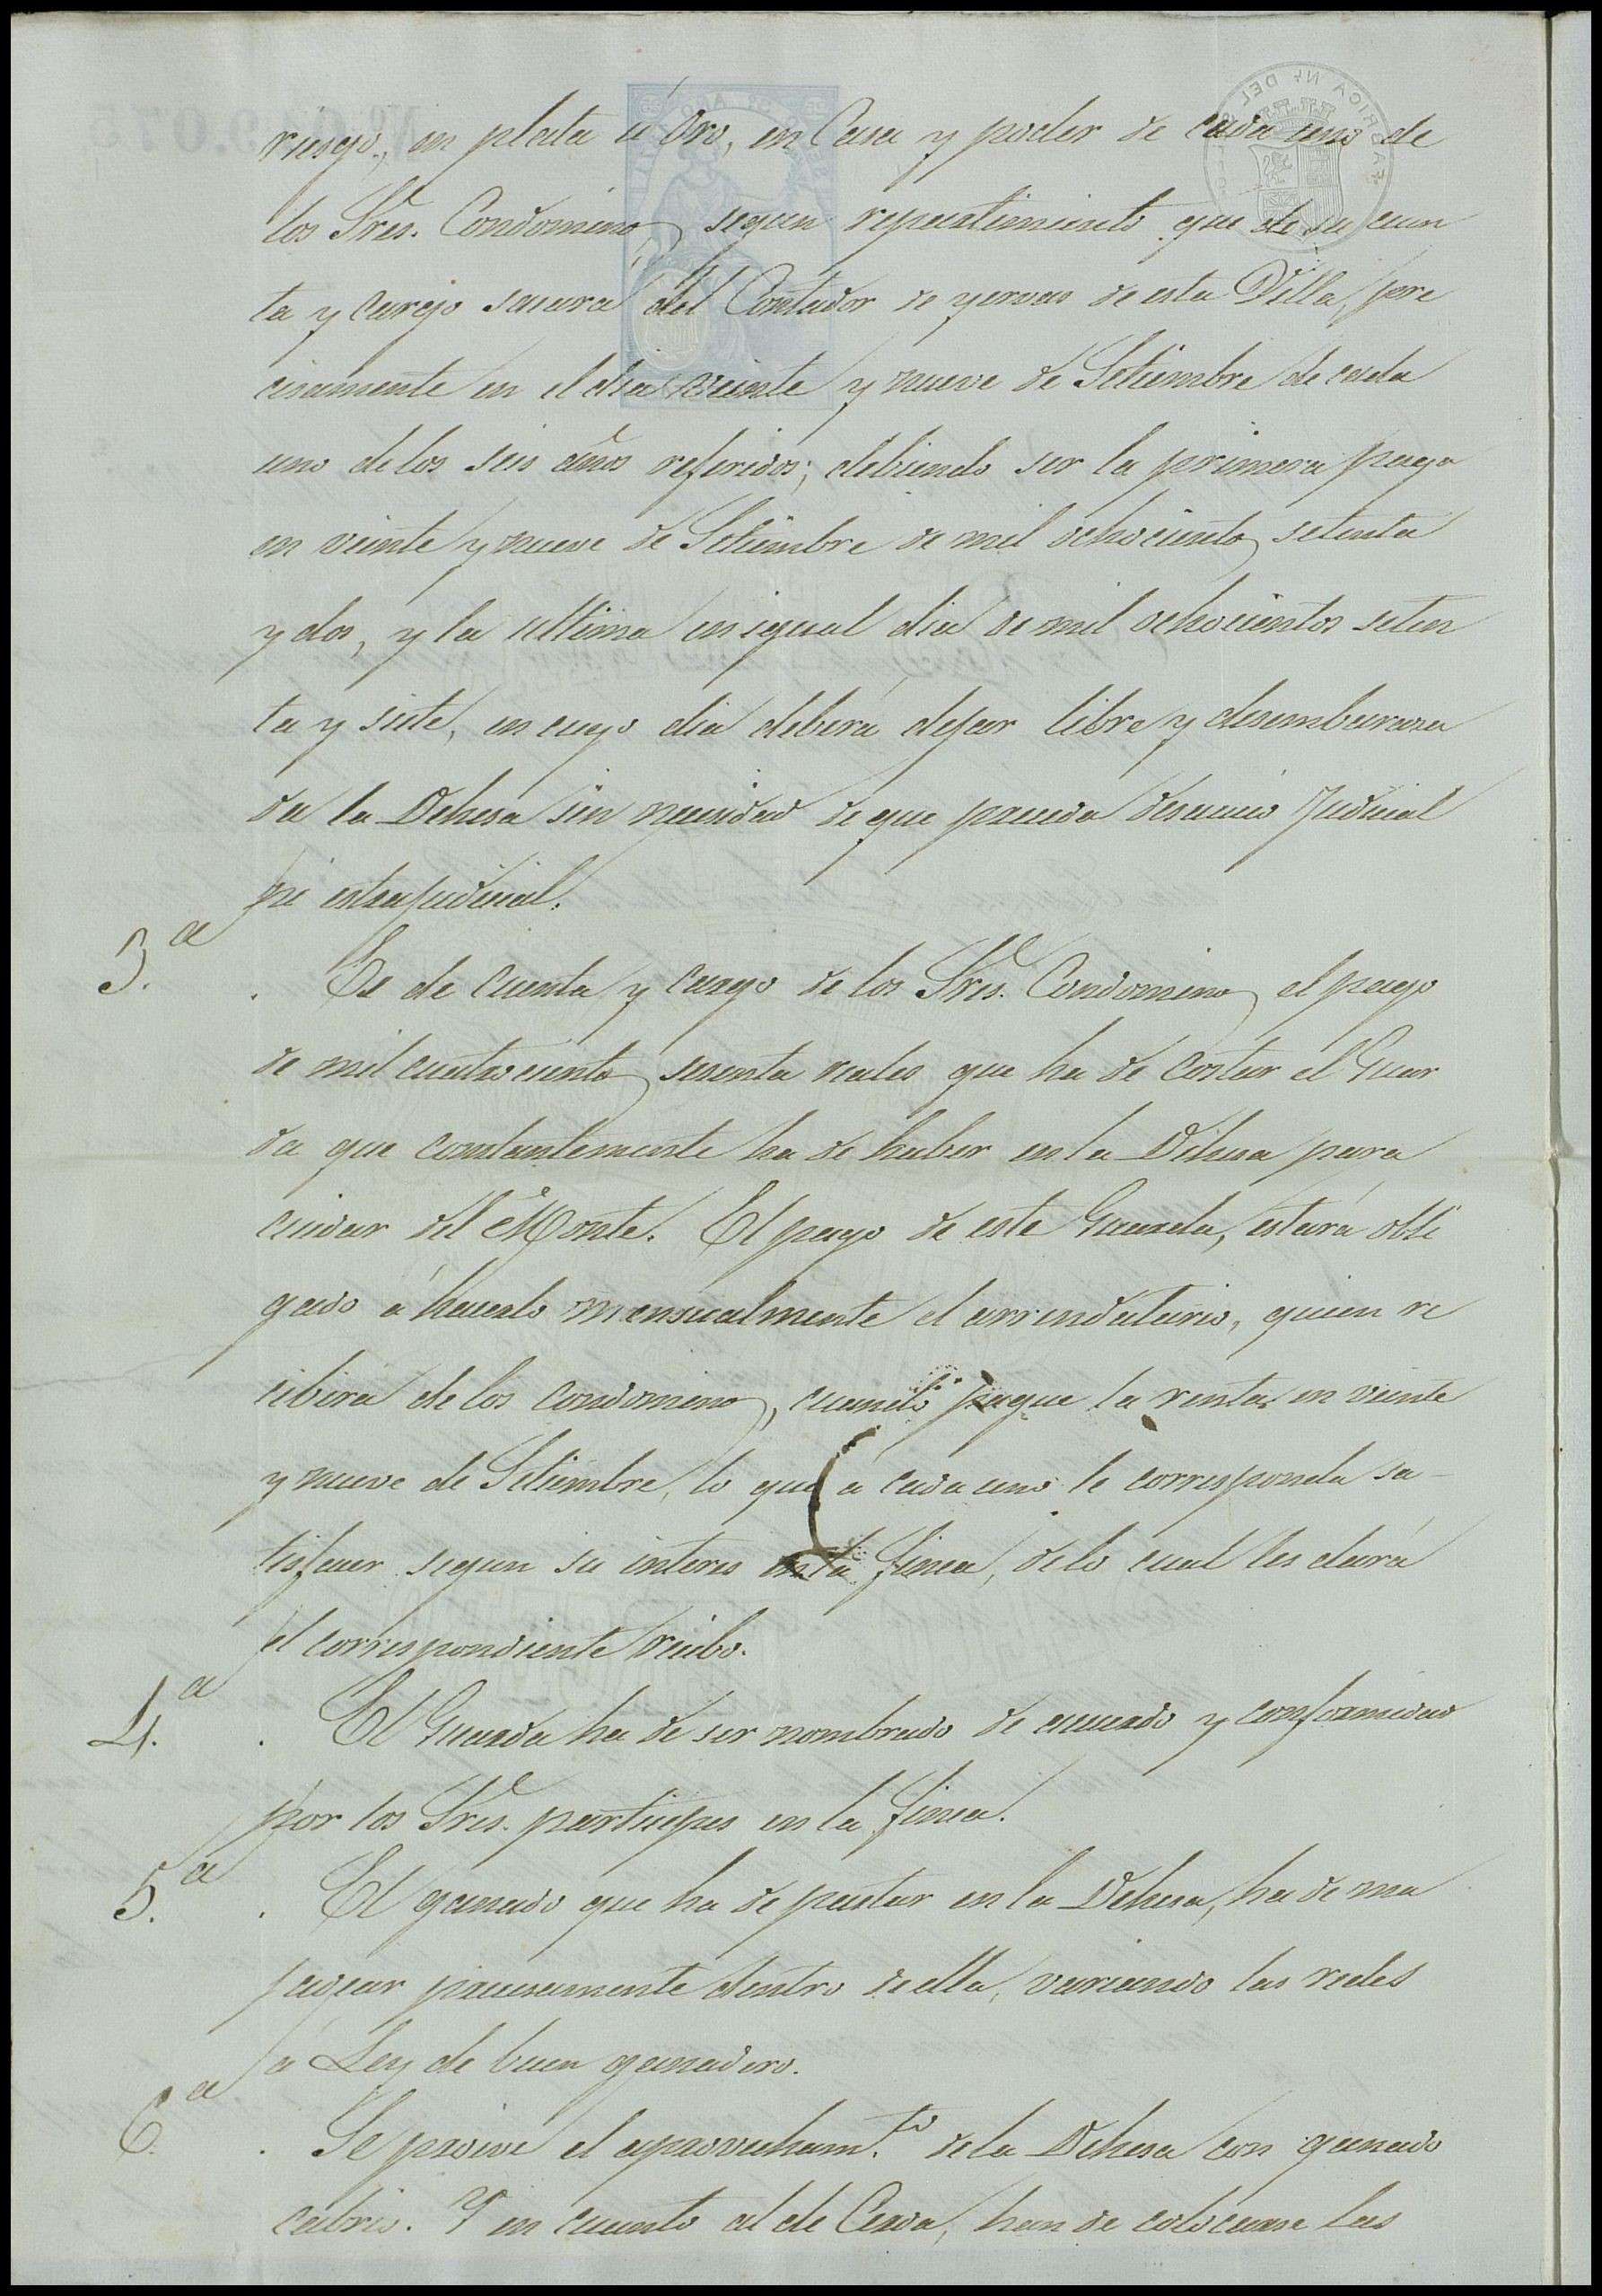 riesgo, en plata ú Oro, en Casa y poder de cada uno de
los Sres. Condominos segun repartimiento que de su cuen
ta y cargo sacará del Contador de yervas de esta Villa, pre
cisamente en el dia veinte y nueve de Setiembre de cada
uno de los seis años referidos; debiendo ser la primera paga
en veinte y nueve de Setiembre de mil ochocientos setenta
y dos, y la ultima en igual dia de mil ochocientos seten
ta y siete, en cuyo dia deberá dejar libre y desembaraza
da la Dehesa sin necesidad de que preceda desaucio Judicial
ni estrajudicial.
3.ª . Es de Cuenta y cargo de los Sres. Condominos el pago
de mil cuatrocientos sesenta reales que ha de costar el Guar
da que constantemente ha de haber en la Dehesa para
cuidar del Monte. El pago de este Guarda, estará obli
gado á hacerlo mensualmente el arrendatario, quien re
cibirá de los condominos, cuando pague la renta en veinte
y nueve de Setiembre, lo que á cada uno le corresponda sa-
tisfacer segun su interes en la finca, de lo cual les dará
el correspondiente recibo.
4.ª . El Guarda ha de ser nombrado de acuerdo y conformidad
por los Sres. participes en la finca.
5.ª . El ganado que ha de pastar en la Dehesa, ha de ma
jadear precisamente dentro de ella, variando las redes
á Ley de buen ganadero.
6.ª . Se proive el aprovecham.to de la Dehesa con ganado
cabrio. Y en cuanto al de Cerda, han de colocarse las